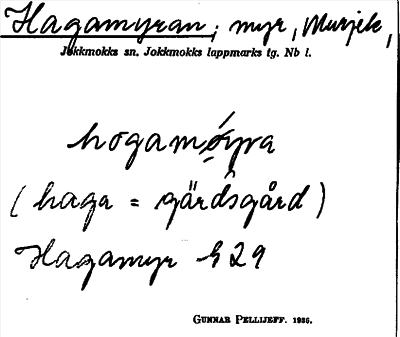 Hagamyran; myr, Murjek,
Jokkmokks sn. Jokkmokks lappmarks tg. Nb l.
(haga = gärdsgård)
Hagamyr 529
GUNNAR PELLIJEFF. 1936.